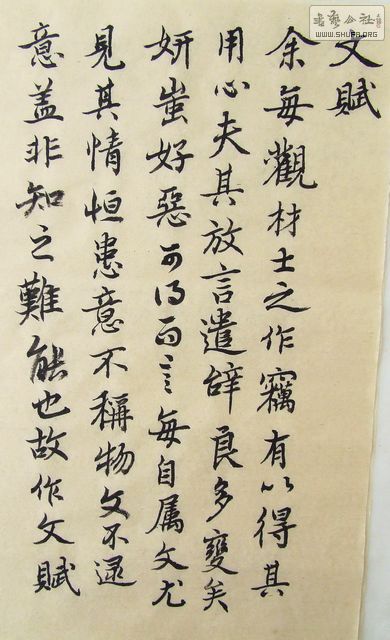 文賦
余每觀材士之作竊有以得其
用心夫其放言遣辞良多變矣
妍蚩好惡可得而言每自属文尤
見其情恒患意不稱物文不逮
意盖非知之難能也故作文賦
書藝公社
WWW.SHUFA.ORG